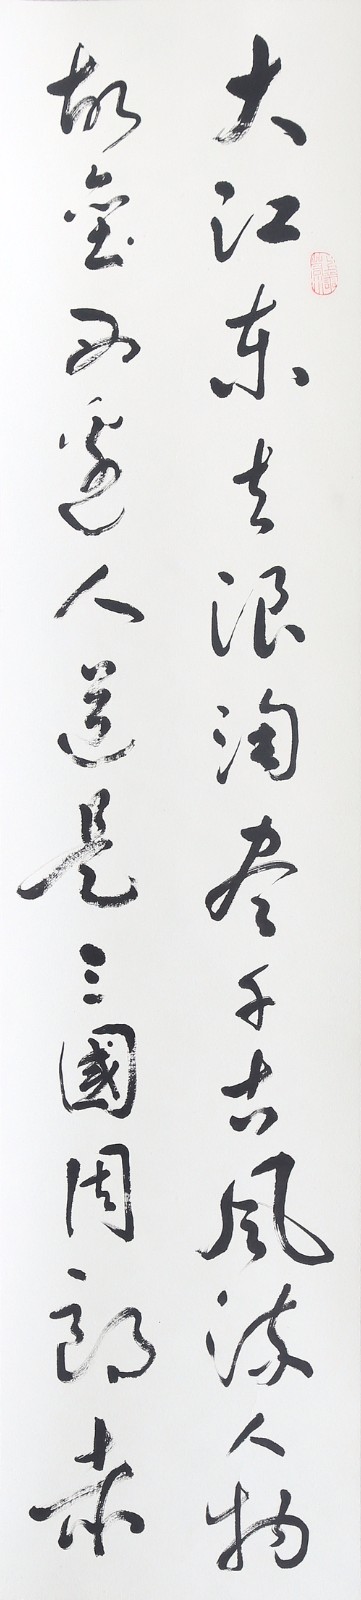 大江东去浪淘尽千古风流人物
故垒西边人道是三國周郎赤